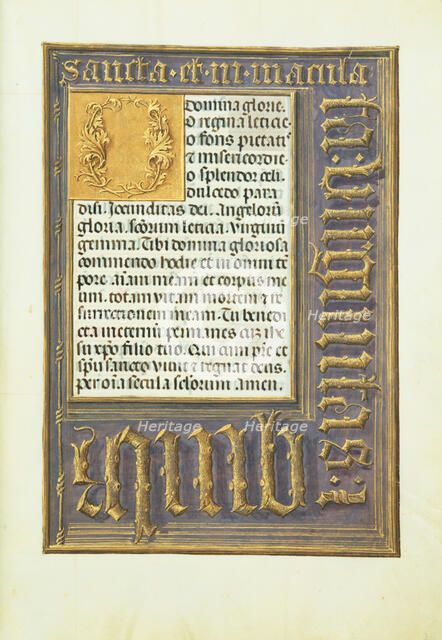 sancta·et·in·macula
ta·virginitas
O Domina glorie.
O regina leticie
o fons pietatꝭ
et misericordie
o splendor celi.
dulcedo para
disi. Jocunditas dei. Angelorū
gloria. Sctōrum leticia. Virginū
gemma. Tibi domina gloriosa
commendo hodie et in omni tēm
pore. aīam meam et corpus me
um. totam vitam mortem et re
surrectionem meam. Tu benedi
cta in eternum permanes cū ihe
su xp̄o filio tuo. Qui cum pr̄e et
spū sancto vivit et regnat deus.
Per oīa secula sclorum amen.
Heritage
Heritage
Heritage
Heritage
Heritage